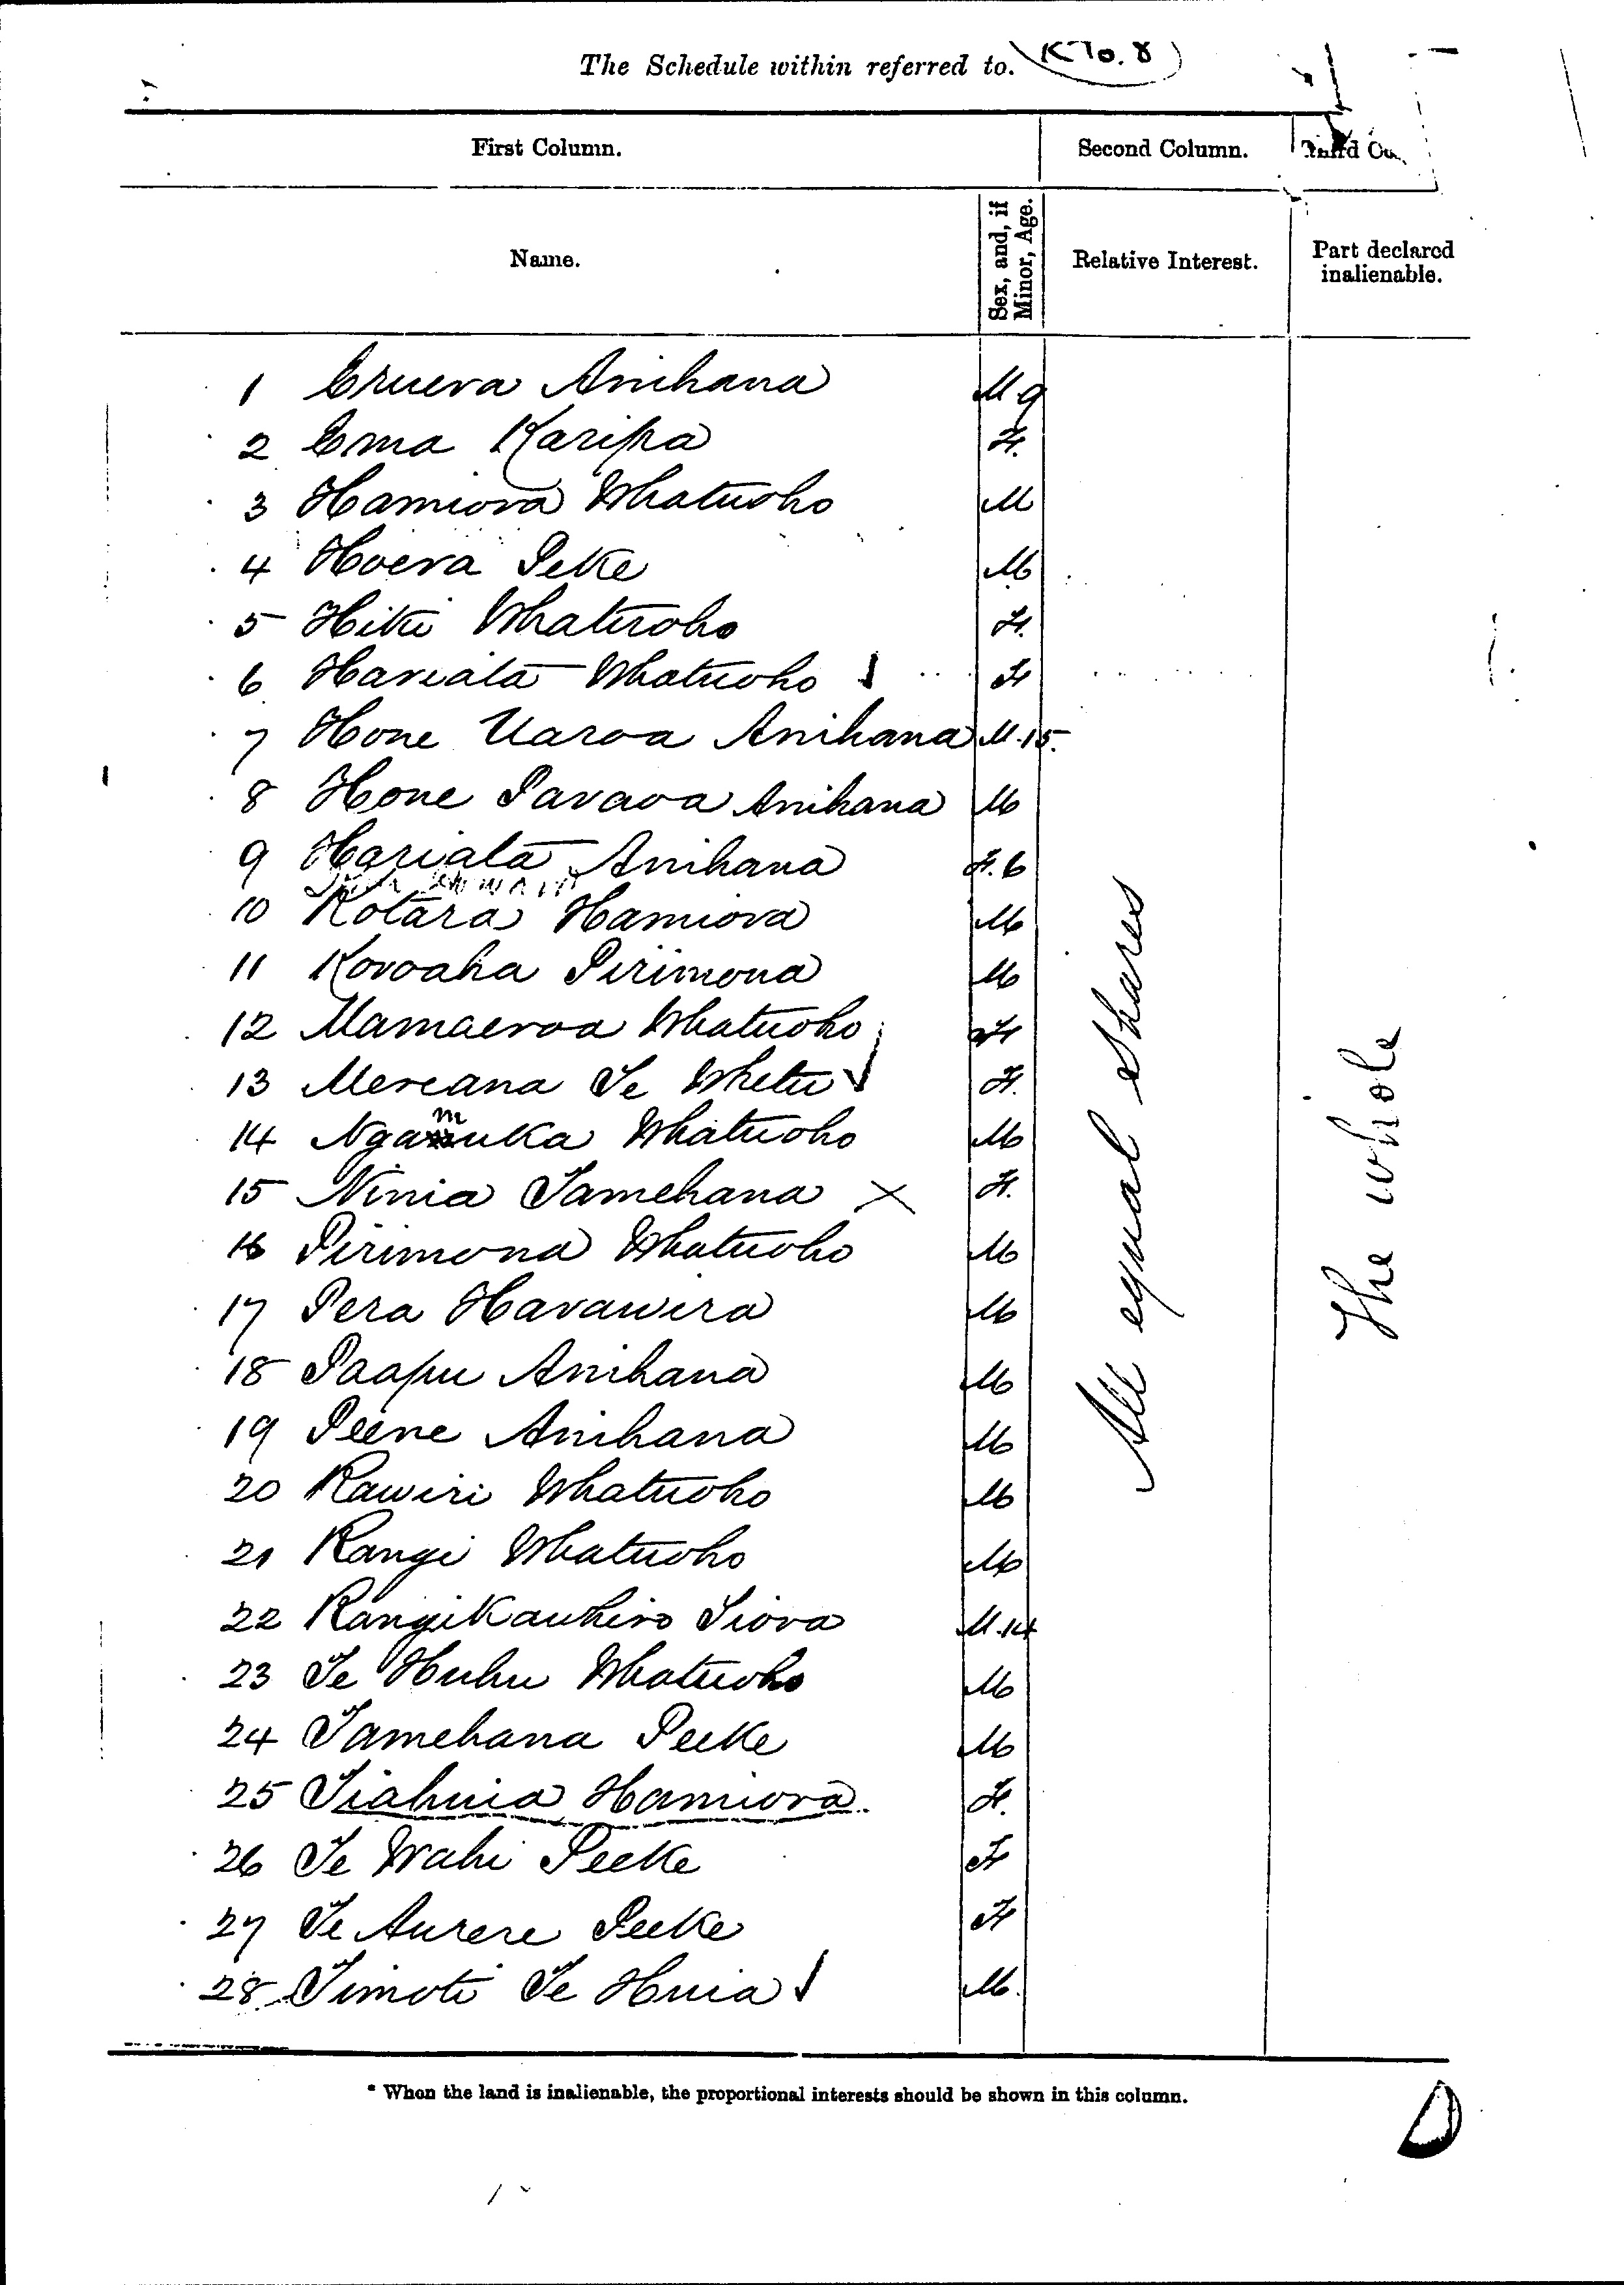 The Schedule within referred to.
First Column. Second Column.
Name. Sex, and, if Minor, Age. Relative Interest. Part declared inalienable.
1 Eruera Anihana M 9
2 Ema Karipa F.
3 Hamiora Whatuoho M
4 Hoera Peke M
5 Hiku Whatuoho F.
6 Hariata Whatuoho F
7 Hone Uaroa Anihana M. 15.
8 Hone Paraoa Anihana M
9 Hariata Anihana F. 6
10 Kotara Hamiora M
11 Koroaha Pirimona M
12 Mamaeroa Whatuoho F
13 Mereana Te Whetu F.
14 Ngamuka Whatuoho M
15 Ninia Tamehana X F.
16 Pirimona Whatuoho M
17 Pera Harawira M
18 Paapu Anihana M
19 Peene Anihana M
20 Rawiri Whatuoho M
21 Rangi Whatuoho M
22 Rangikauhiro Tiora M. 14
23 Te Huhu Whatuoho M
24 Tamehana Peeke M
25 Tiahuia Hamiora. F.
26 Te Wahi Peeke F
27 Te Aurere Peeke F
28 Timoti Te Huia M.
All equal shares
The whole
* When the land is inalienable, the proportional interests should be shown in this column.